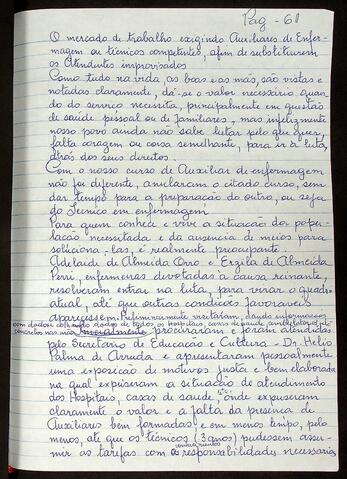 Pag - 61
O mercado de trabalho exigindo Auxiliares de Enfer-
magem ou técnicos competentes, afim de substituirem
os Atendentes improvisados
Como tudo na vida, as boas e as más, são vistas e
notadas claramente, dá-se o valor necessário quan
do do serviço necessita, principalmente em questão
de saúde pessoal ou de familiares, mas infelizmente
nosso povo ainda não sabe lutar pelo que quer,
falta coragem ou coisa semelhante, para ir à luta,
atrás dos seus direitos.
Com o nosso curso de Auxiliar de enfermagem
não foi diferente, anularam o citado curso, sem
dar tempo para a preparação do outro, ou seja
do Técnico em enfermagem
Para quem conhece e vive a situação da popu-
lação necessitada e da ausencia de meios para
soluciona-las, é realmente preocupante.
Adelaide de Almeida Orro e Erzila de Almeida
Perri, enfermeiras devotadas a causa reinante,
resolveram entrar na luta, para virar o quadro
atual, até que outras condições favoraveis
aparecessem. Preliminarmente visitaram, dando informações
com dados dados de todos os hospitais casas de saúde, ambulatórios
em mãos procuraram e foram atendidas
pelo Secretário de Educação e Cultura - Dr. Helio
Palma de Arruda e apresentaram pessoalmente
uma exposição de motivos justa e bem elaborada
na qual expuseram a situação de atendimento
dos Hospitais, casas de saúde, etc, onde expuseram
claramente o valor e a falta da presença de
Auxiliares bem formadas e em menos tempo, pelo
menos, até que os técnicos (3 anos) pudessem assu-
mir as tarefas com as responsabilidades necessária